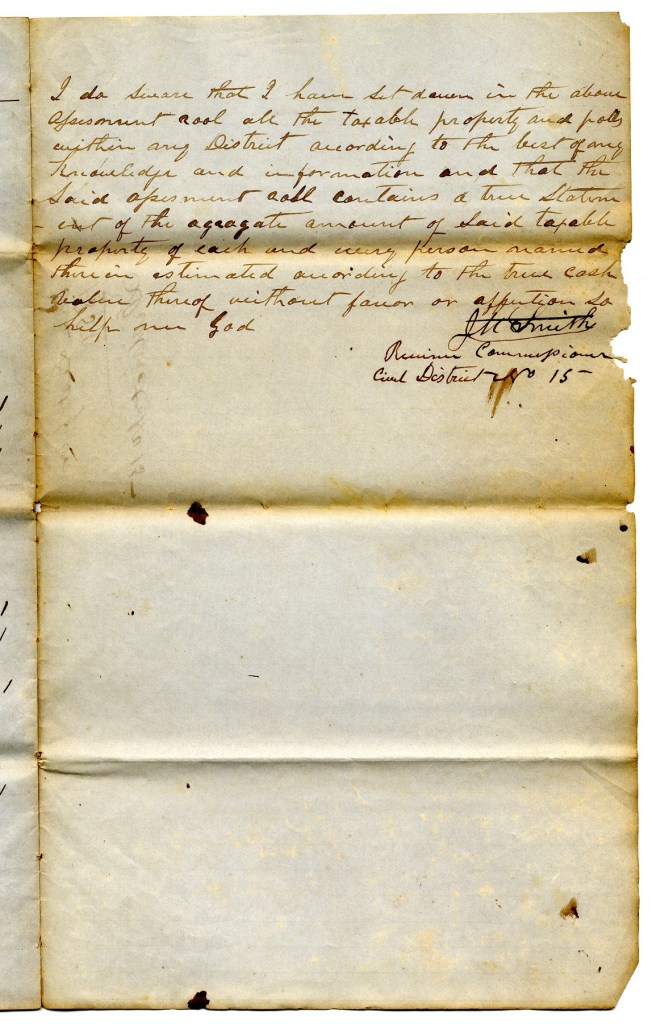 I do sweare that I have set down in the above
assesment rool all the taxable property and polls
within my District according to the best of my
Knowledge and information and that the
Said assesment roll contains a true Statem
-ent of the agragate amount of Said taxable
property of each and every person named
therein estimated acording to the true cash
value thereof without favor or affection So
help me God
Smith
Commissioner
Civil District No 15